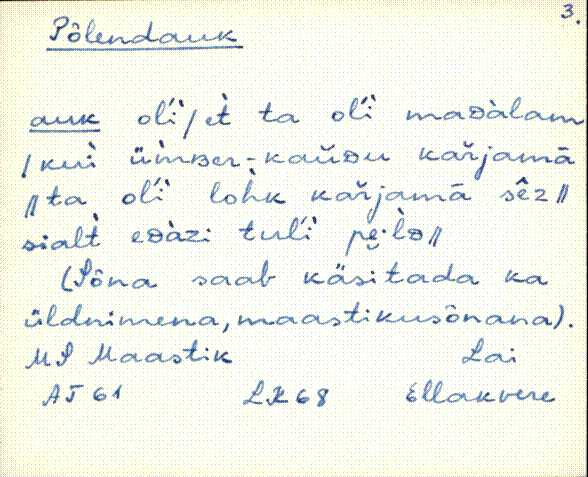 3.
Põlendauk
auk oĺì / èt ta oĺì maᴅàlam
/ kuì üm̀ʙer-kaŭᴅu kařjamā
// ta oĺì loh̀k kařjamā sêz //
sialt̀ eᴅàzi tuĺì pe̮i̮l̀ᴅ //
(Sõna saab käsitada ka
üldnimena, maastikusõnana).
MS Maastik Lai
AT 61 LK 68 Ellakvere